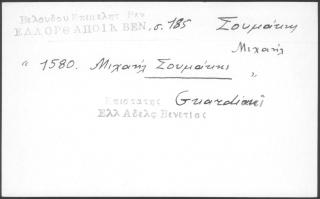 Βελούδου Επιπελητ Βεν
ΕΛΛΟΡΘΑΠΟΙΚ ΒΕΝ, σ. 185 Σουμάκης
Μιχαήλ
" 1580. Μιχαήλ Σουμάκης "
Επιστάτης Guardiani
Ελλ Αδελφ Βενετίας